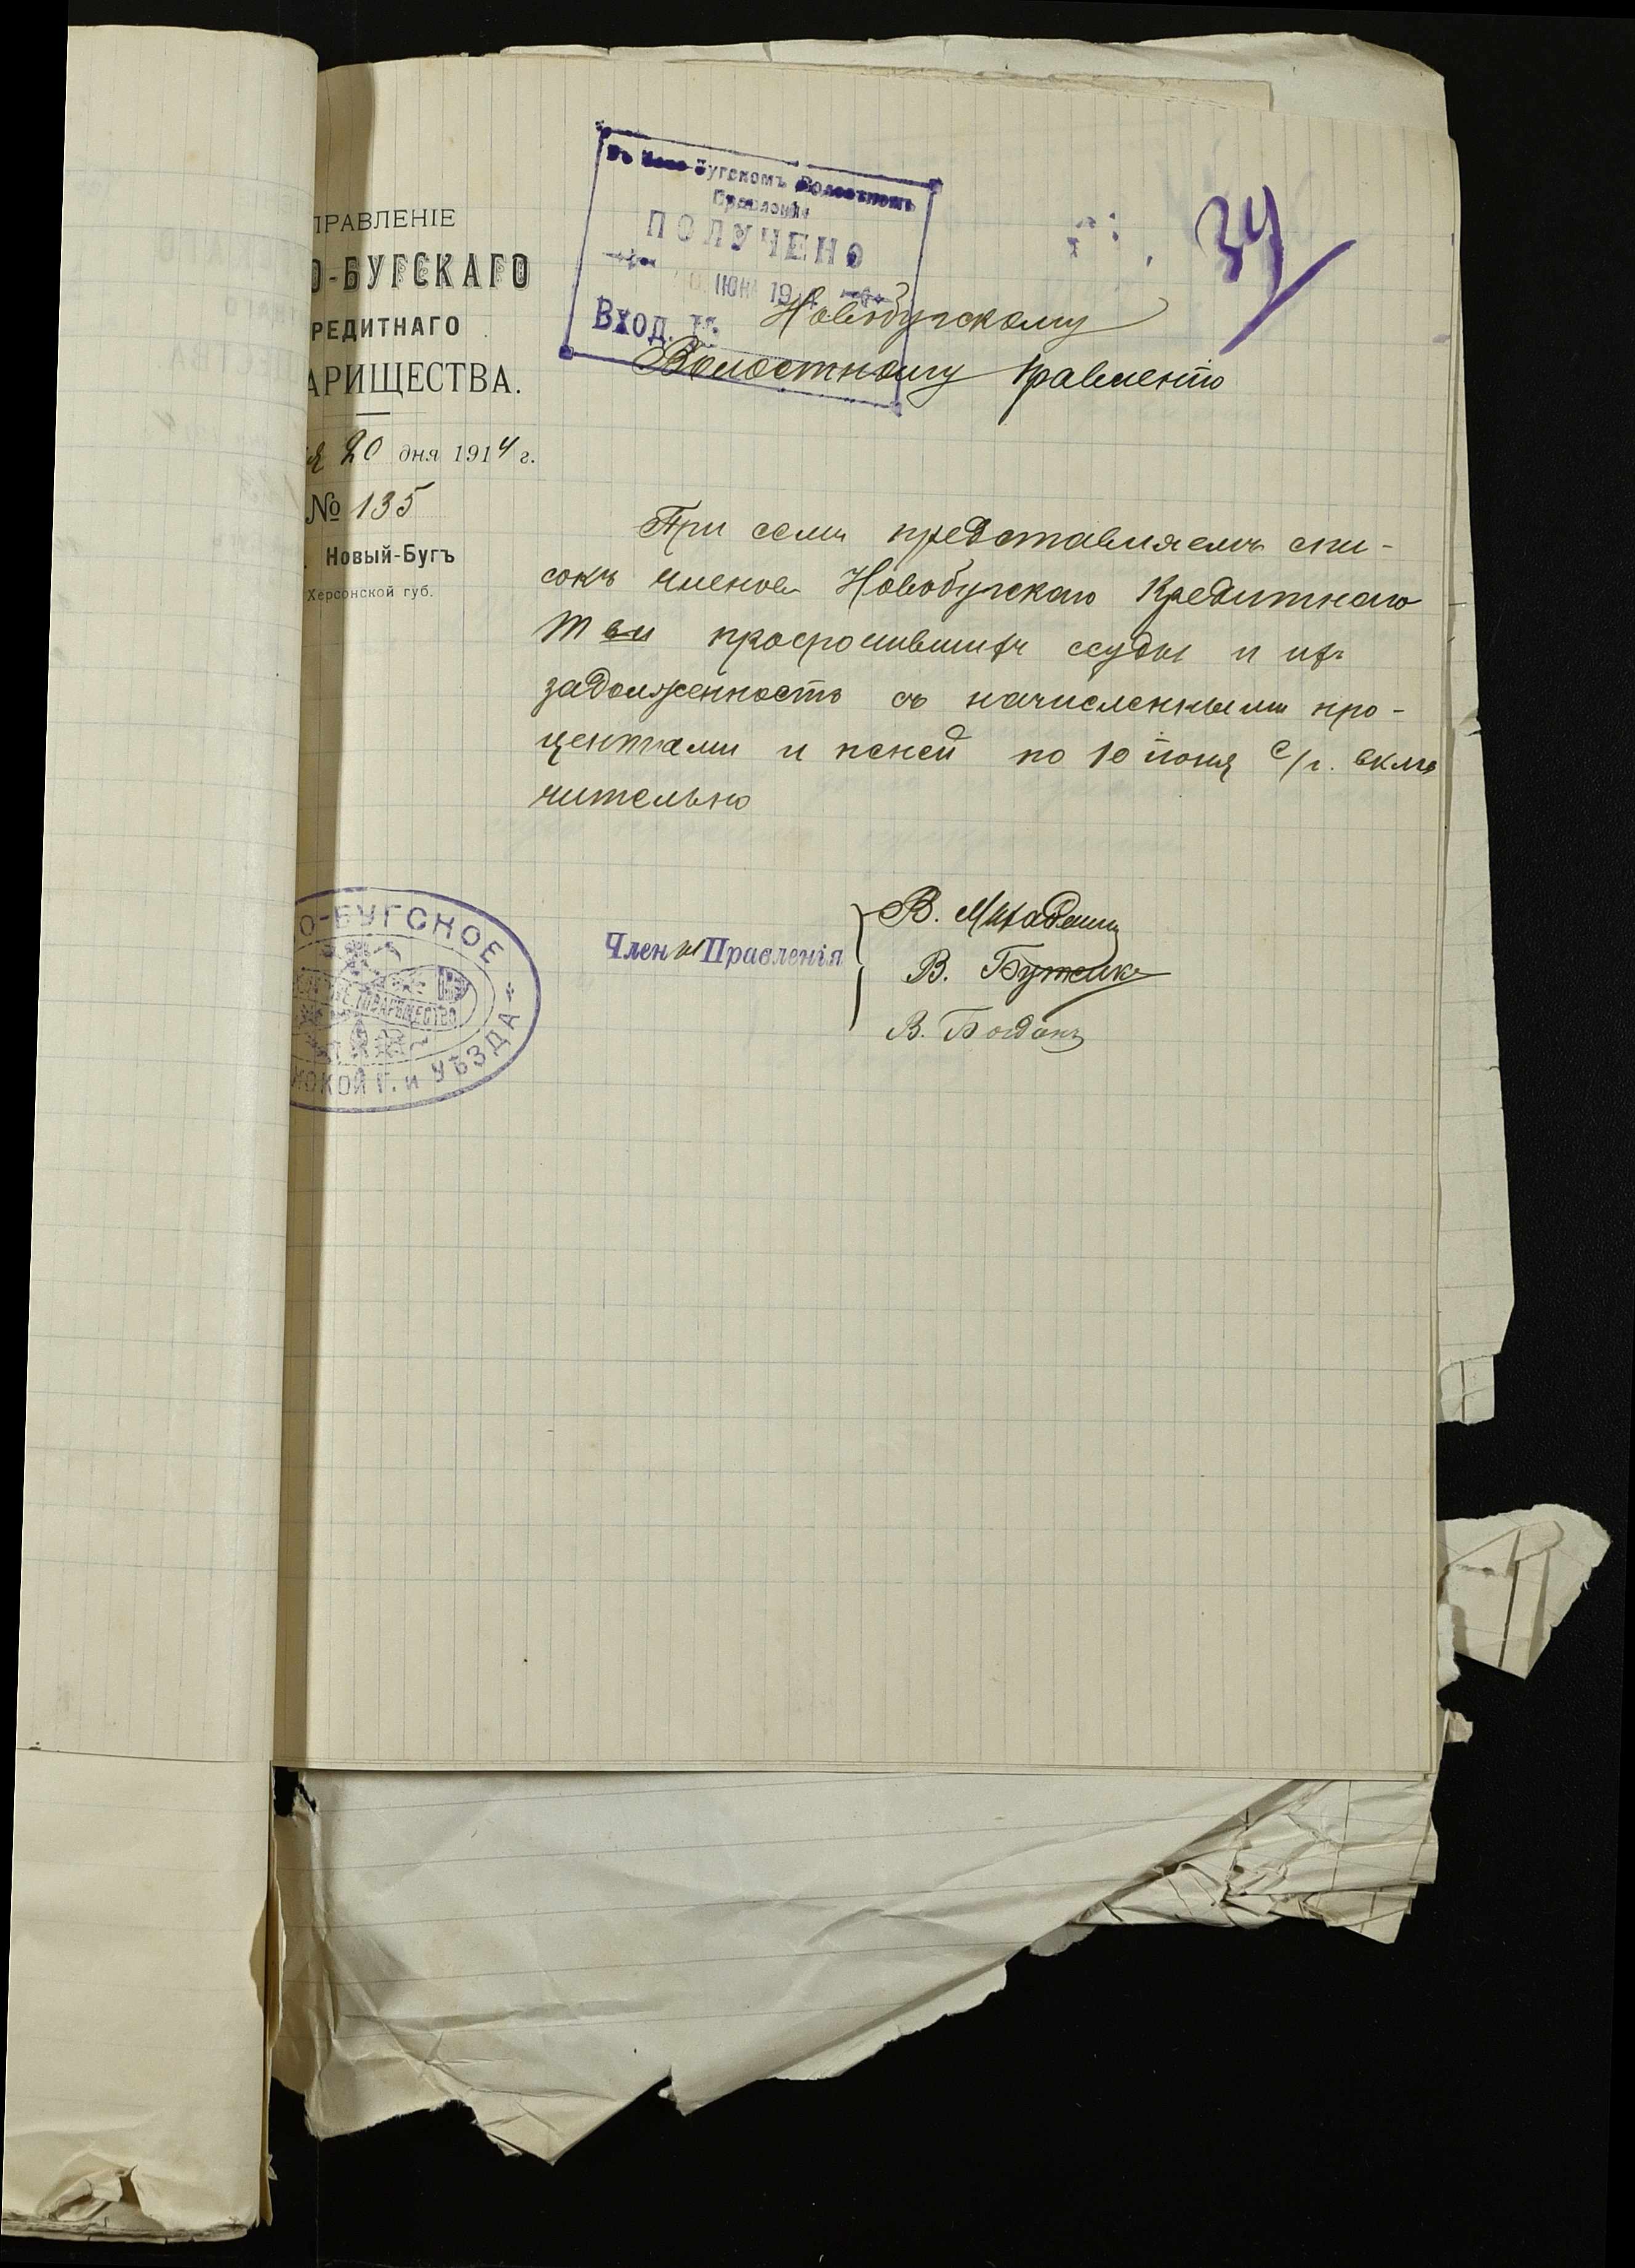 ПРАВЛЕНІЕ
О-БУГСКАГО
РЕДИТНАГО
АРИЩЕСТВА.
20 дня 1914 г.
№ 135
Новый-Бугъ
Херсонской губ.
Въ Ново-Бугскомъ Волостномъ
Правленіи
ПОЛУЧЕНО
ІЮН 191
Вход. №
39
Новобугскому
Волостному Правленію
При семъ представляемъ спи-
сокъ членов Новобугскаго Кредитнаго
Т ва просрочившихъ ссуды и ихъ
задолженность съ начисленными про-
центами и пеней по 10 іюня с/г. вклю
чительно
Члены Правленія
В.
В.
В. Богданъ
О-БУГСКОЕ
ТОВАРИЩЕСТВО
СКОЙ Г. и УѢЗДА